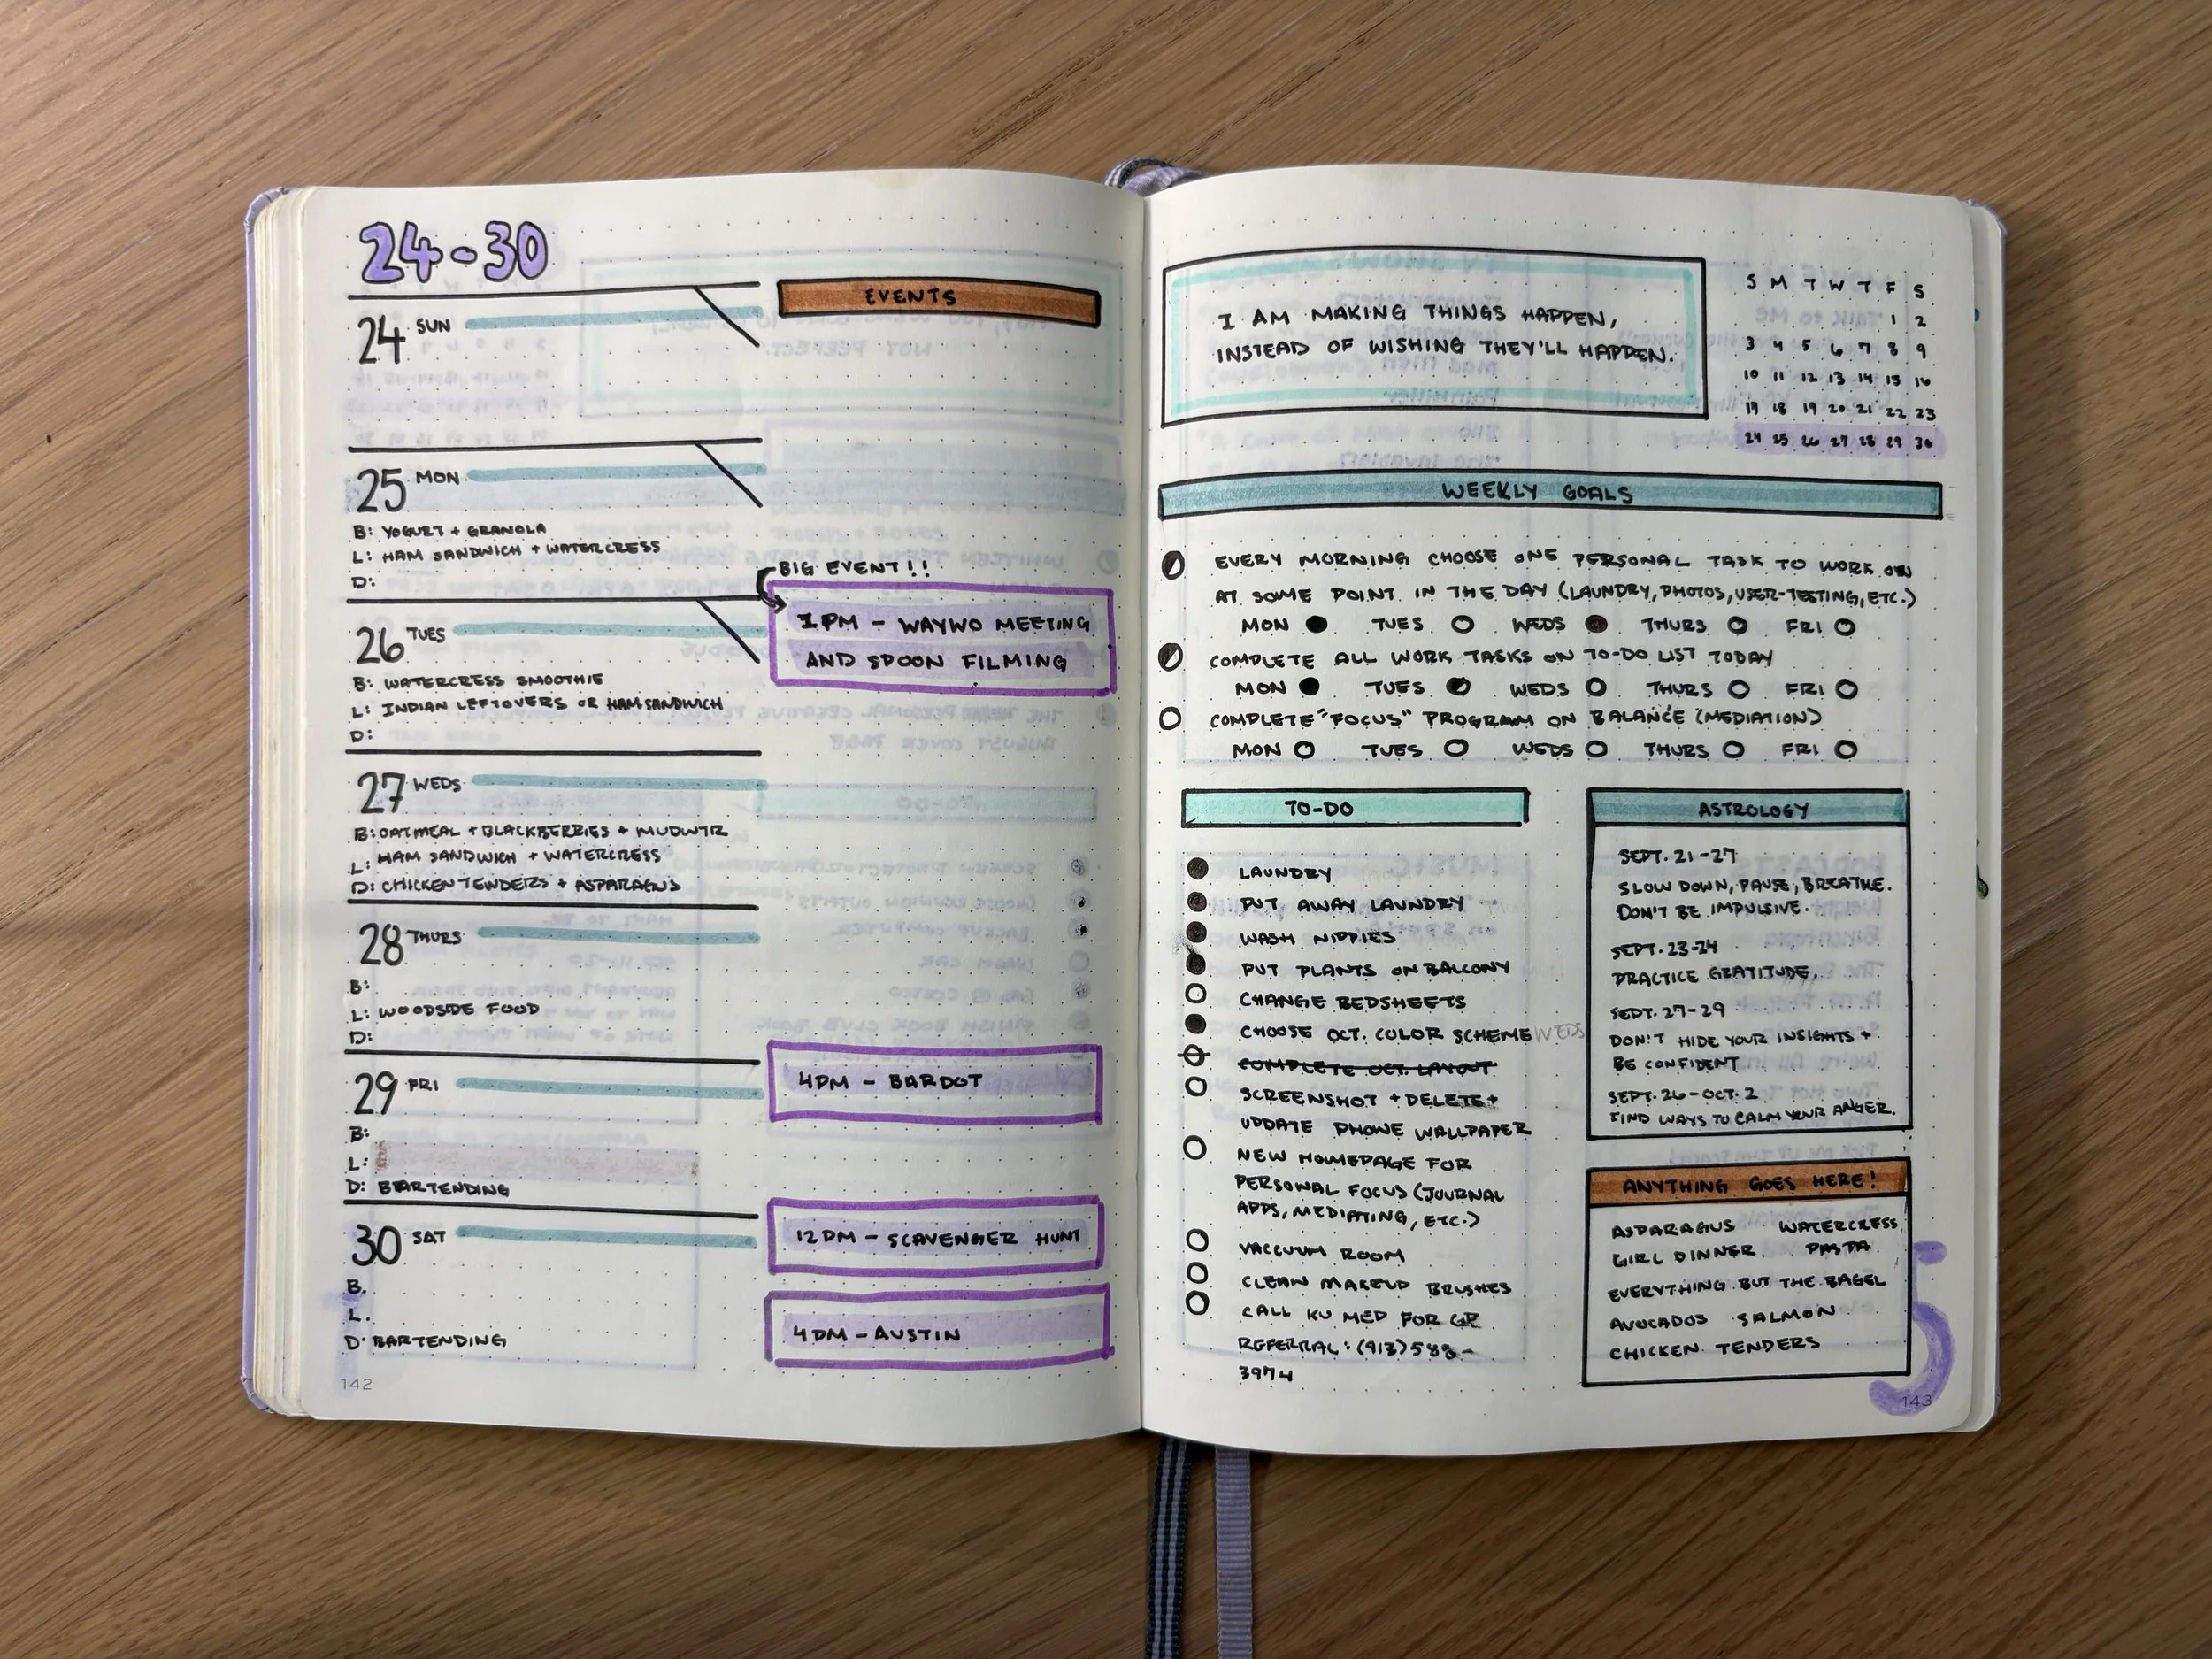 24-30
EVENTS
24 SUN
25 MON
B: YOGURT + GRANOLA
L: HAM SANDWICH + WATERCRESS
D:
BIG EVENT!!
1PM - WAYWO MEETING
AND SPOON FILMING
26 TUES
B: WATERCRESS SMOOTHIE
L: INDIAN LEFTOVERS OR HAM SANDWICH
D:
27 WEDS
B: OATMEAL + BLACKBERRIES + MUDWTR
L: HAM SANDWICH + WATERCRESS
D: CHICKEN TENDERS + ASPARAGUS
28 THURS
B:
L: WOODSIDE FOOD
D:
29 FRI
4PM - BARDOT
B:
L:
D: BARTENDING
30 SAT
12PM - SCAVENGER HUNT
B.
L.
4PM - AUSTIN
D. BARTENDING
142
I AM MAKING THINGS HAPPEN,
INSTEAD OF WISHING THEY'LL HAPPEN.
S M T W T F S
1 2
3 4 5 6 7 8 9
10 11 12 13 14 15 16
17 18 19 20 21 22 23
24 25 26 27 28 29 30
WEEKLY GOALS
EVERY MORNING CHOOSE ONE PERSONAL TASK TO WORK ON
AT SOME POINT IN THE DAY (LAUNDRY, PHOTOS, USER-TESTING, ETC.)
MON TUES WEDS THURS FRI
COMPLETE ALL WORK TASKS ON TO-DO LIST TODAY
MON TUES WEDS THURS FRI
COMPLETE "FOCUS" PROGRAM ON BALANCE (MEDIATION)
MON TUES WEDS THURS FRI
TO-DO
LAUNDRY
PUT AWAY LAUNDRY
WASH NIPPIES
PUT PLANTS ON BALCONY
CHANGE BEDSHEETS
CHOOSE OCT. COLOR SCHEME WEDS
COMPLETE OCT. LAYOUT
SCREENSHOT + DELETE +
UPDATE PHONE WALLPAPER
NEW HOMEPAGE FOR
PERSONAL FOCUS (JOURNAL
APPS, MEDIATING, ETC.)
VACCUUM ROOM
CLEAN MAKEUP BRUSHES
CALL KU MED FOR GP
REFERRAL: (913) 588-
3974
ASTROLOGY
SEPT. 21-27
SLOW DOWN, PAUSE, BREATHE.
DON'T BE IMPULSIVE.
SEPT. 23-24
PRACTICE GRATITUDE.
SEPT. 27-29
DON'T HIDE YOUR INSIGHTS +
BE CONFIDENT
SEPT. 26-OCT. 2
FIND WAYS TO CALM YOUR ANGER.
ANYTHING GOES HERE!
ASPARAGUS WATERCRESS
GIRL DINNER PASTA
EVERYTHING BUT THE BAGEL
AVOCADOS SALMON
CHICKEN TENDERS
143